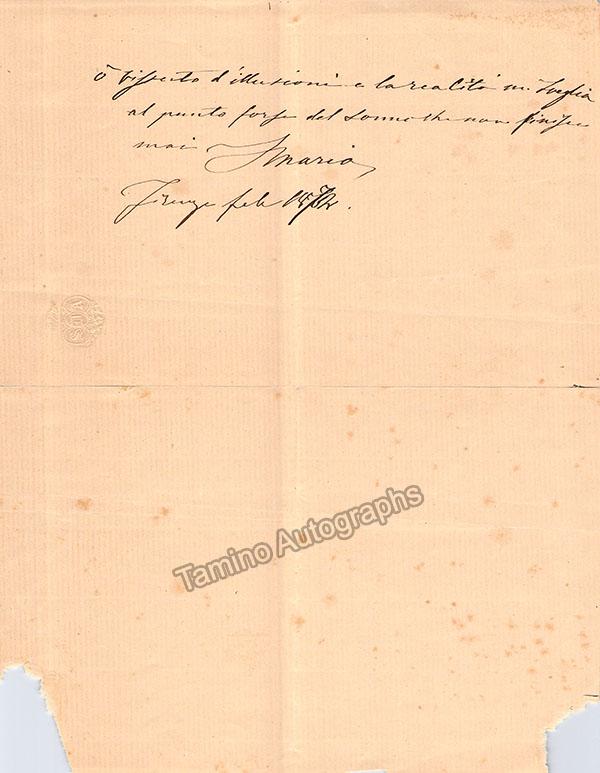 ò vissuto d'illusioni e la realità mi sveglia
al punto forse del sonno che non finisce
mai Mario
Firenze feb 1872.
Tamino Autographs